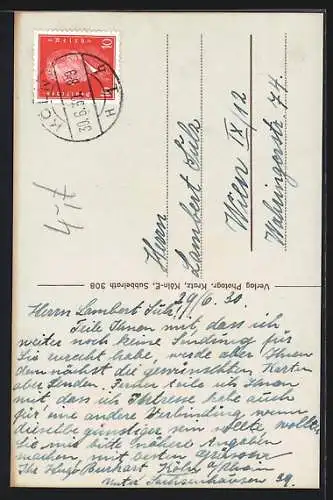 KÖLN
30.6.30
10
Herrn
Lambert Sulz
Wien IX/12
Währingerstr. 74.
Verlag Photogr. Kratz, Köln-E, Subbelrath 308
29/6. 30.
Herrn Lambert Sulz!
Teile Ihnen mit, dass ich
weiter noch keine Sendung für
Sie erreicht habe, werde aber Ihnen
demnächst die gewünschten Karten
aber senden. Ferner teile ich Ihnen
mit, dass ich Interesse habe auch
für eine andere Verbindung wenn
dieselbe günstiger sein sollte wollen
Sie mir bitte nähere Angaben
machen, mit besten Grüssen
Ihr Hugo Burkart Köln a/Rhein
Unter Sachsenhausen 39.